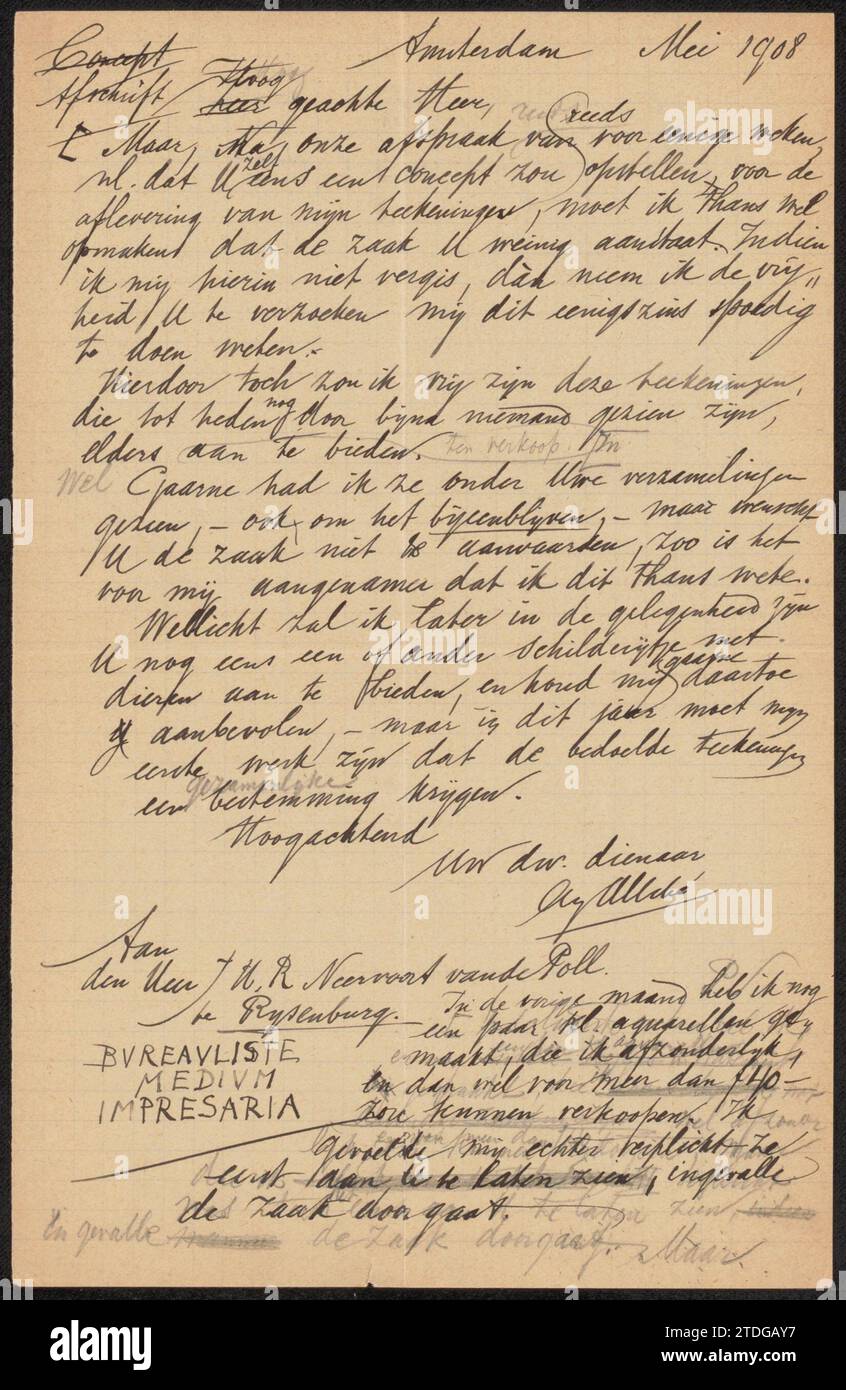 Concept Amsterdam Mei 1908
Afschrift Hoog
heer geachte Heer, reeds
[ Maar, Na, onze afspraak van voor eenige weken,
nl. dat U zelf eens een concept zou opstellen, voor de
aflevering van mijn teekeningen, moet ik thans wel
opmaken dat de zaak U weinig aanstaat. Indien
ik mij hierin niet vergis, dàn neem ik de vrij„
heid, U te verzoeken mij dit eenigszins spoedig
te doen weten.-
Hierdoor toch zou ik vrij zijn deze teekeningen,
die tot heden nog door bijna niemand gezien zijn,
elders aan te bieden. ten verkoop. In
Wel Gaarne had ik ze onder Uwe verzamelingen
gezien, - ook om het bijeenblijven, - maar wenscht
U de zaak niet te aanvaarden, zoo is het
voor mij aangenamer dat ik dit thans wete.
Wellicht zal ik later in de gelegenheid zijn
U nog eens een of ander schilderijtje met
dieren aan te bieden, en houd mij gaarne daartoe
aanbevolen, - maar in dit jaar moet mijn
eerste werk zijn dat de bedoelde teekeningen
gezamenlijke
een bestemming krijgen.
Hoogachtend
Uw dw. dienaar
Aug Allebé
Aan
den Heer H, R Neervoort van de Poll.
te Rysenburg.
In de vorige maand heb ik nog
een paar kl aquarellen ge„
maakt, die ik afzonderlijk,
en dan wel voor meer dan f 40-
zou kunnen verkoopen. Ik
gevoelde mij echter verplicht ze
eerst aan U te laten zien, ingevalle
de zaak doorgaat.
BVREAVLISTE
MEDIVM
IMPRESARIA
te laten zien, indien
In gevalle wanneer de zaak doorgaat. Maar.
alamy
Image ID: 2TDGAY7
www.alamy.com